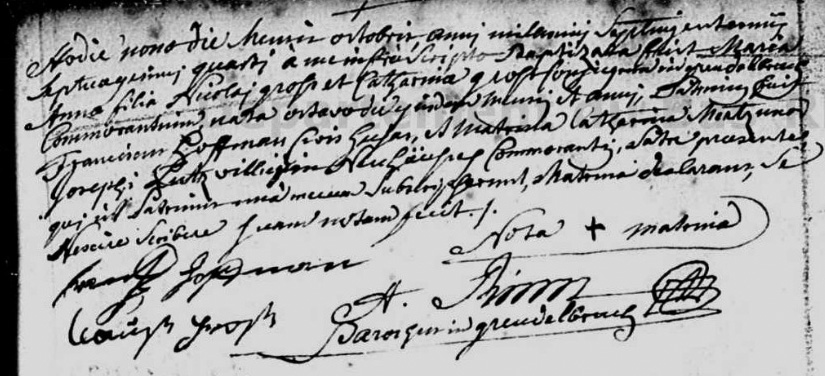 Hodie nono die Mensis octobris anni millesimi Septingentesimi
Septuagesimi quarti à me infra Scripto Baptizata fuit Maria
Anna filia Nicolaj gross et Catharina gross conjugum in grendelbruch
Commorantium nata octavo die ejusdem Mensis et anni, Patrinus fuit
Franciscus Hoffman civis hujus, et Matrina Catharina Metz uxor
Josephi commorantis, Patre presente
qui ut Patrinus una mecum Subscripserunt, Matrina declarans, Se
Nescire Scribere Suam notam fecit ./.
Nota + matrinae
frantz Hoffman
gross
Parochus in grendelbruch